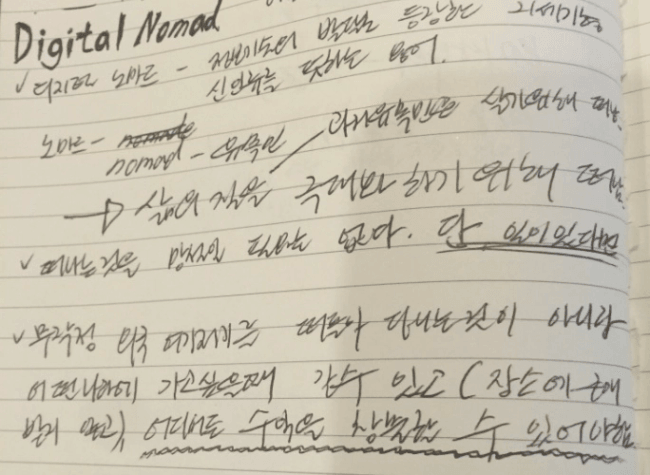 Digital Nomad
✓ 디지털 노마드 - 정보기술의 발달로 등장한 21세기형
신인류를 뜻하는 용어.
노마드 - nomade
nomad - 유목민 과거유목민은 살기위해 떠남.
→ 삶의 질을 극대화 하기 위해 떠남.
✓ 떠나는것을 망설일 필요는 없다. 단, 일이있다면
✓ 무작정 외국 여기저기를 떠돌아 다니는것이 아니라
어떤나라에 가고싶을때 갈수 있고 (장소에 구애
받지 않고), 어디서든 수익을 창출할 수 있어야함.